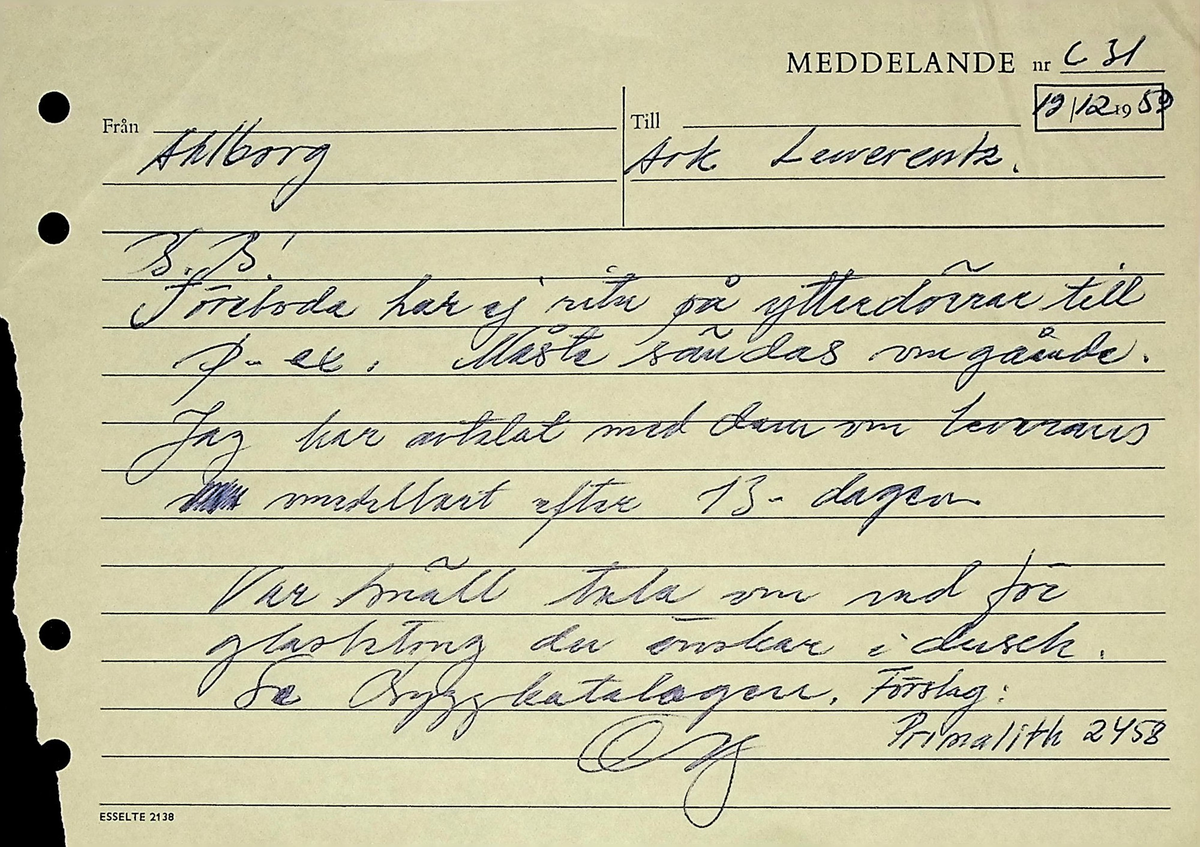 MEDDELANDE nr C 31
19/12 1959
Från Ahlborg
Till Ark. Lewerentz.
B. B!
Töreboda har ej ritn på ytterdörrar till
p-ex. Måste sändas omgående.
Jag har avtalat med dem om leverans
omedelbart efter 13-dagen
Var snäll tala om vad för
glasbtong du önskar i dusch.
Se Byggkatalogen. Förslag:
Primalith 2458
ESSELTE 2138